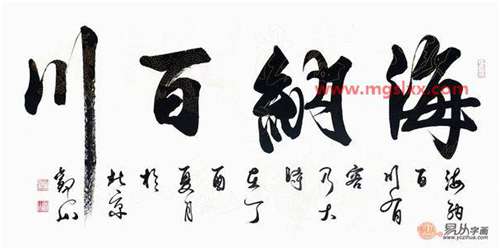 海納百川
海納
百
川有
容
乃大
時
在丁
酉
夏月
於
北京
www.mgslxx.com
易从字画